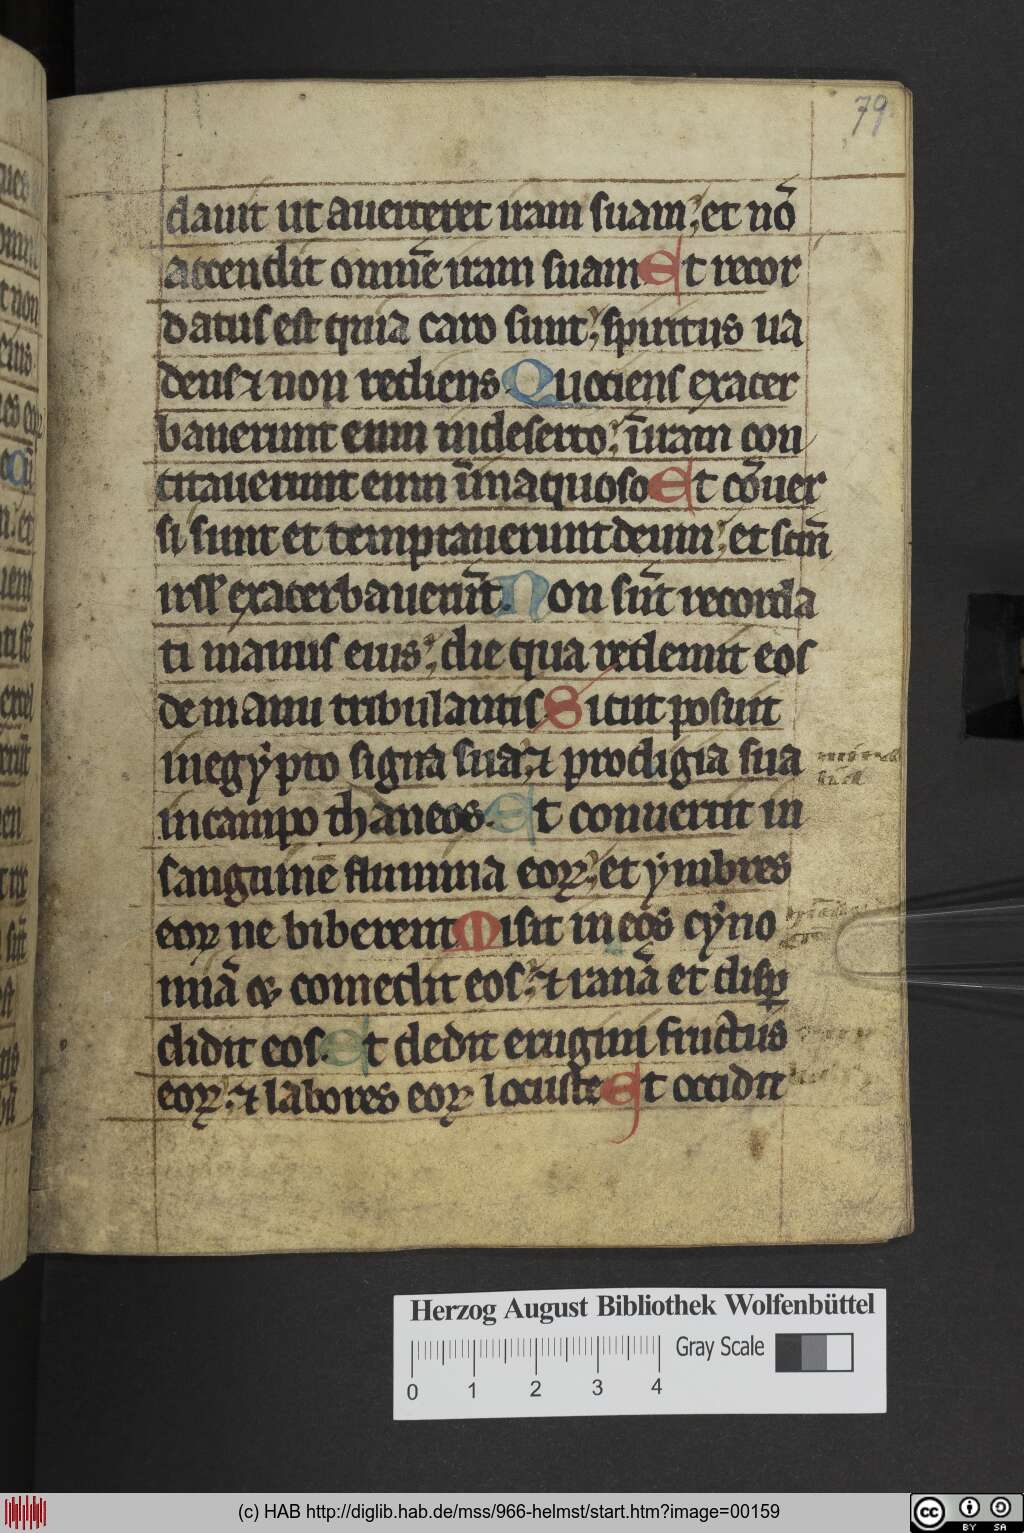 79
dauit ut auerteret iram suam; et nō
accendit omnē iram suam Et recor
datus est quia caro sunt; spiritus ua
dens ⁊ non rediens. Quociens exacer
bauerunt eum in deserto; ī iram con
citauerunt eum ī inaquoso Et cōuer
si sunt et temptauerunt deum; et scm̄
isrl̄ exacerbauerūt. Non sūt recorda
ti manus eius; die qua redemit eos
de manu tribulantis Sicut posuit
in egẏpto signa sua; ⁊ prodigia sua
in campo thaneos. Et conuertit in
sanguinē flumina eoꝝ; et ẏmbres
eoꝝ ne biberent Misit in eos cẏno
miā ⁊ comedit eos; ⁊ ranā et disꝑ
didit eos. Et dedit erugini fructus
eoꝝ; ⁊ labores eoꝝ locuste Et occidit
Herzog August Bibliothek Wolfenbüttel
Gray Scale
0 1 2 3 4
(c) HAB http://diglib.hab.de/mss/966-helmst/start.htm?image=00159
cc BY SA